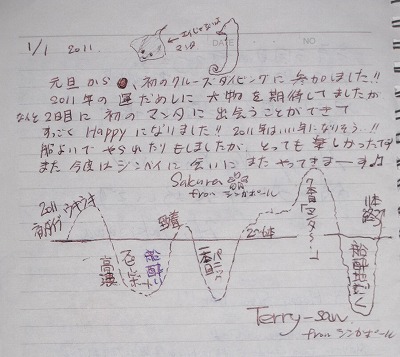 1/1 2011
エイじゃないよ
マンタ
DATE
NO
元旦から、初のクルーズダイビングに参加しました!!
2011年の運だめしに大物を期待してましたが
なんと2日目に初のマンタに出会うことができて
すっごくHappyになりました!! 2011年はいい年になりそう..!!
船よいでやられたりもしましたが、とっても楽しかったです
また今度はジンベイに会いにまたやってきまーす♪
Sakura
from シンガポール
2011
ウキウキ
高波
船酔い
到着
パニック
2本目
7本目「マンター!」
船酔
Terry-san
from シンガポール